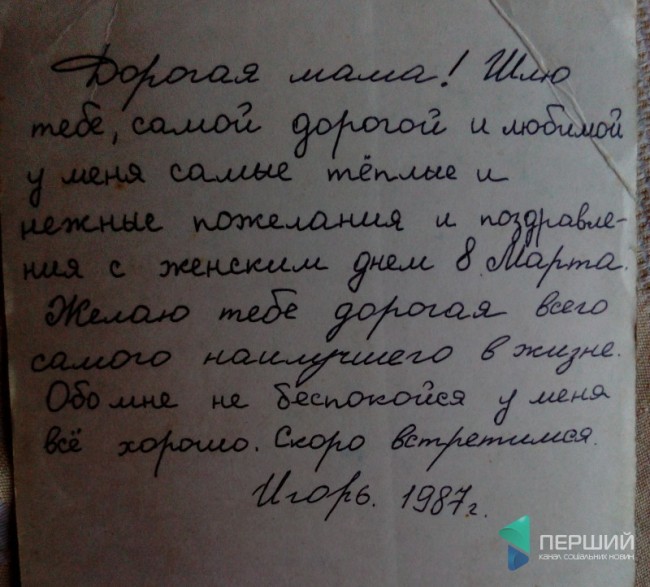 Дорогая мама! Шлю
тебе, самой дорогой и любимой
у меня самые тёплые и
нежные пожелания и поздравле-
ния с женским днем 8 Марта.
Желаю тебе дорогая всего
самого наилучшего в жизне.
Обо мне не беспокойся у меня
всё хорошо. Скоро встретимся.
Игорь. 1987г.
ПЕРШИЙ
канал соціальних новин